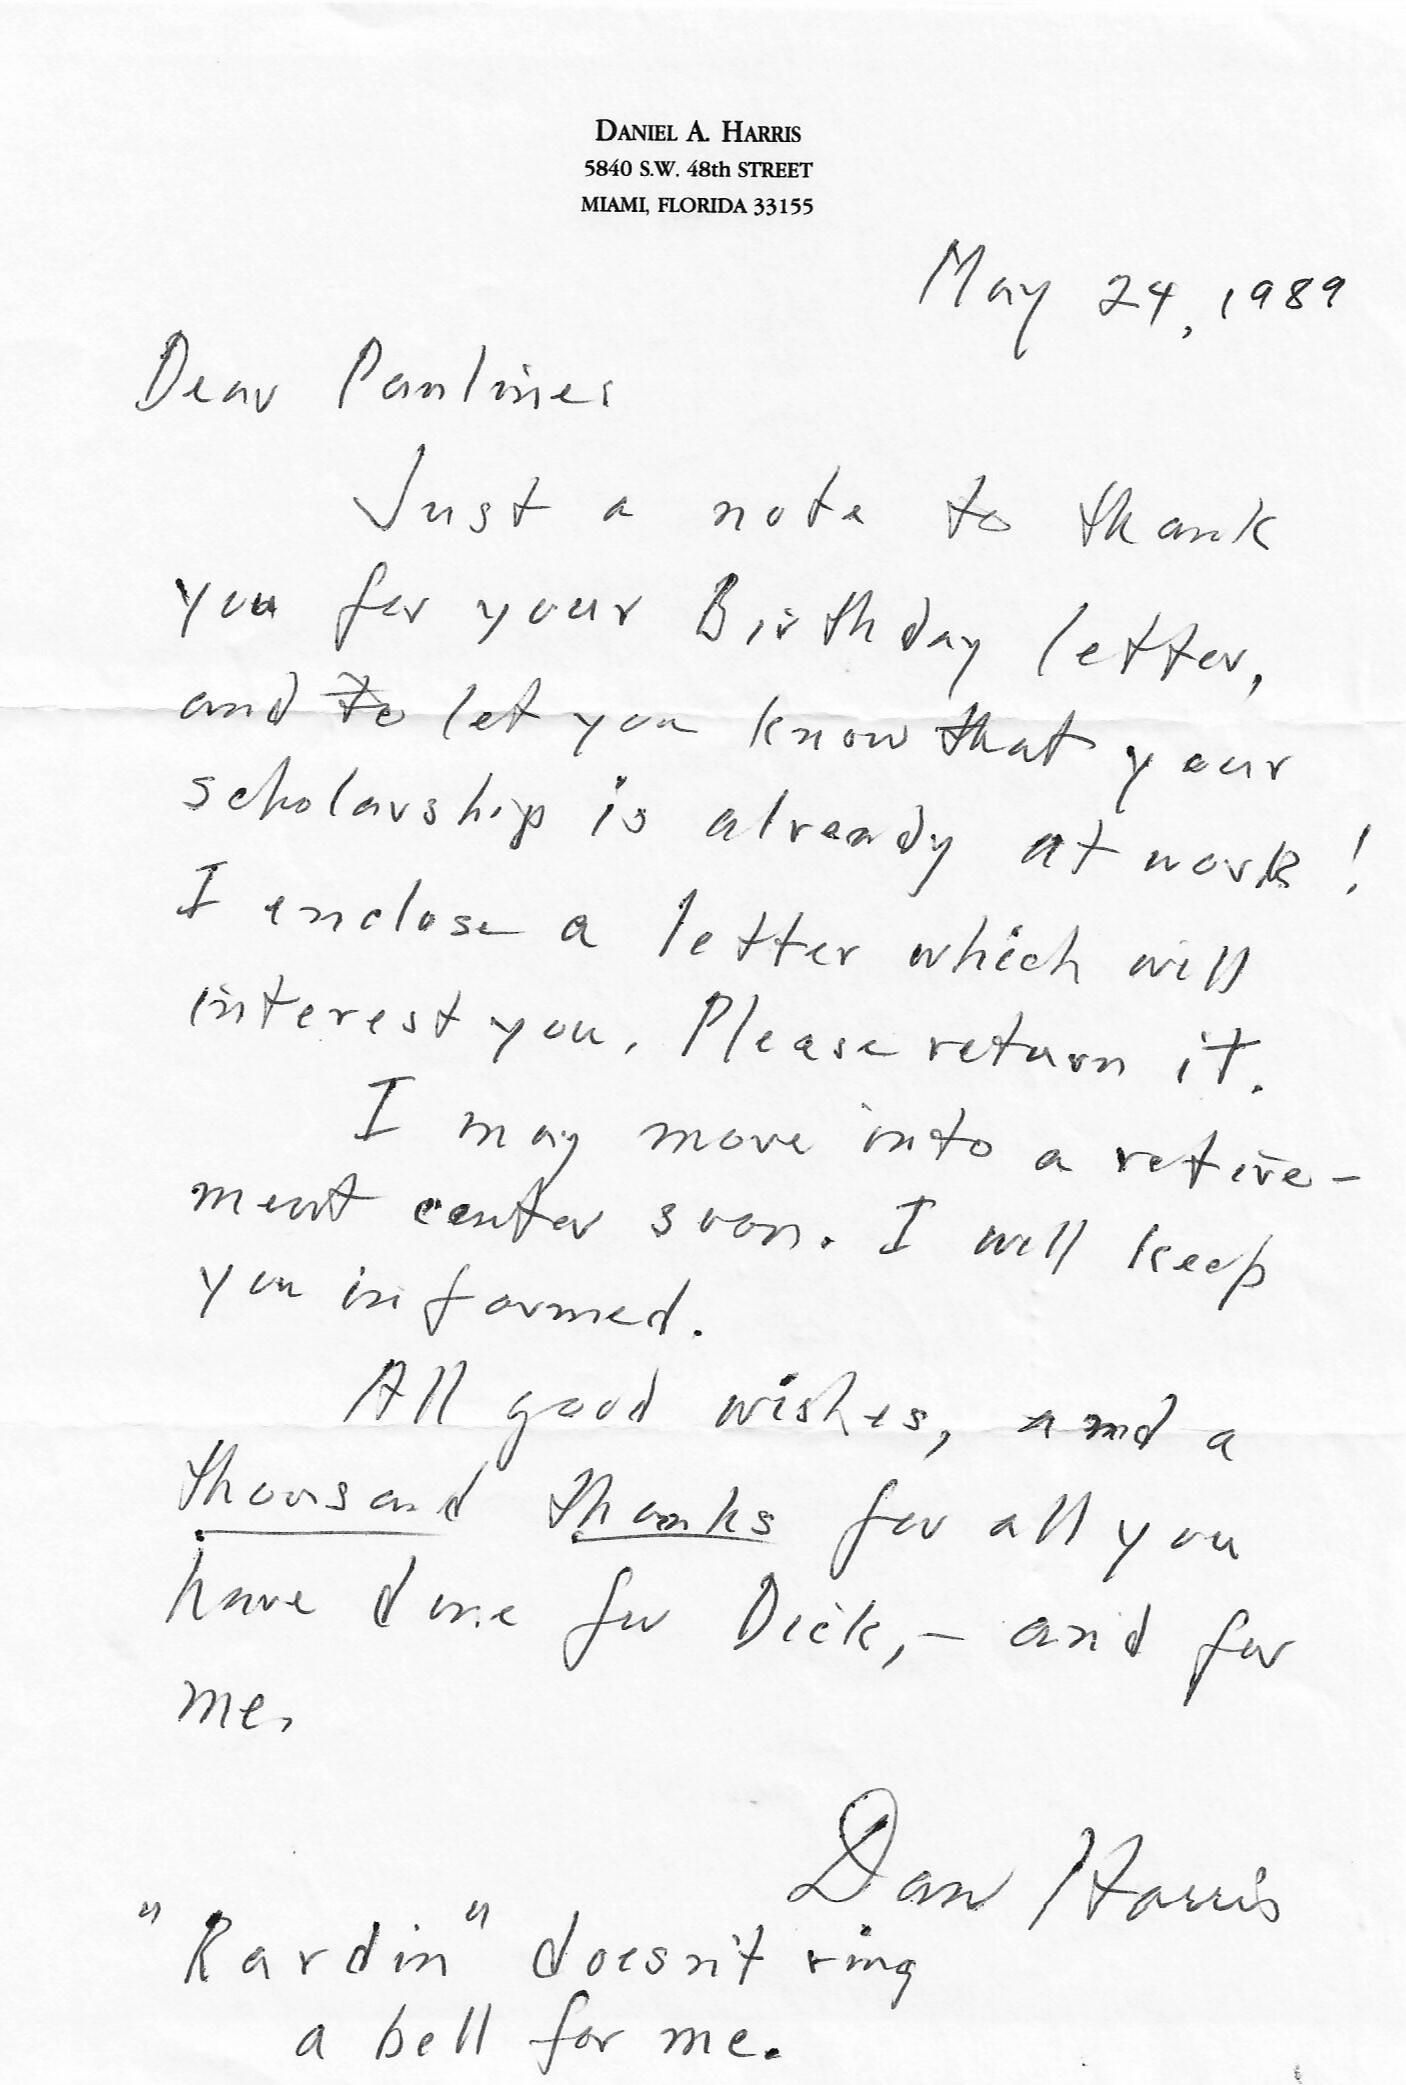 DANIEL A. HARRIS
5840 S.W. 48th STREET
MIAMI, FLORIDA 33155
May 24, 1989
Dear Pauline:
Just a note to thank
you for your Birthday letter,
and to let you know that your
scholarship is already at work!
I enclose a letter which will
interest you. Please return it.
I may move into a retire-
ment center soon. I will keep
you informed.
All good wishes, and a
thousand thanks for all you
have done for Dick,- and for
me.
Dan Harris
"Rardin" doesn't ring
a bell for me.